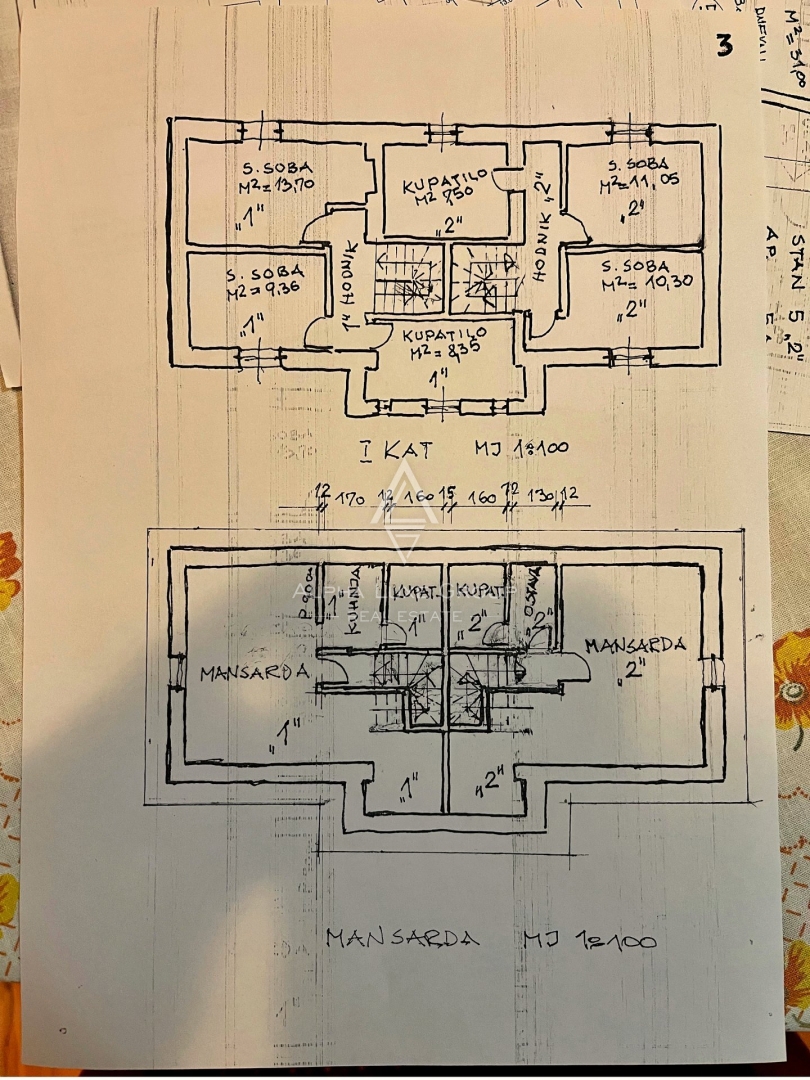 3
M²=31,00
DNEVNI
STAN 5 „2"
AP.
S. SOBA
M²=13,70
„1"
KUPATILO
M² 7,50
„2"
HODNIK „2"
S. SOBA
M²=11,05
„2"
S. SOBA
M²=9,36
„1"
„1" HODNIK
KUPATILO
M²=8,35
„1"
S. SOBA
M²=10,30
„2"
I KAT MJ 1:100
12 170 12 160 15 160 12 130 12
ALPHA
REAL ESTATE
KUHINJA
„1"
KUPAT.
„1"
KUPAT.
„2"
OSTAVA
„2"
MANSARDA
„1"
MANSARDA
„2"
„1"
„2"
MANSARDA MJ 1:100